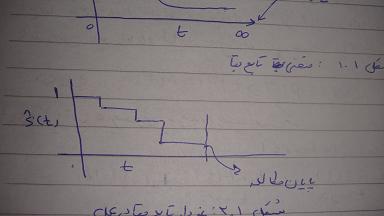 0 t ∞
شکل ۱.۱ : منحنی بقا تابع بقا
1
Ŝ(t)
0 t
پایان مطالعه
شکل ۲.۱ : نمودار تابع بقا در عمل